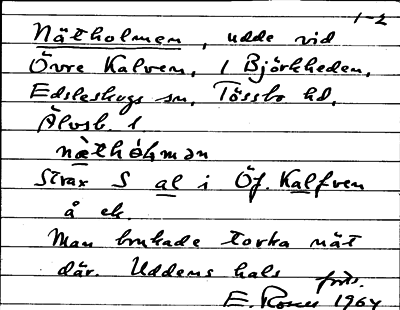 1-2
Nätholmen, udde vid
Övre Kalven, i Björkheden,
Edsleskogs sn, Tössbo hd,
Älvsb. l
nàthólman
Strax S al i Öf. Kalfven
å ek.
Man brukade torka nät
där. Uddens hals
forts.
E. 1964